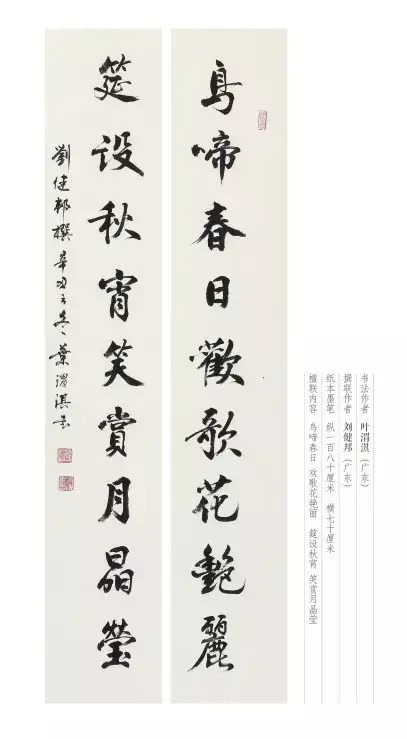 鳥啼春日歡歌花艷麗
筵设秋宵笑賞月晶瑩
劉健邦撰 辛丑之冬 葉渭淇書
书法作者 叶渭淇（广东）
撰联作者 刘健邦（广东）
纸本墨笔 纵一百八十厘米 横七十厘米
楹联内容 鸟啼春日 欢歌花艳丽 筵设秋宵 笑赏月晶莹